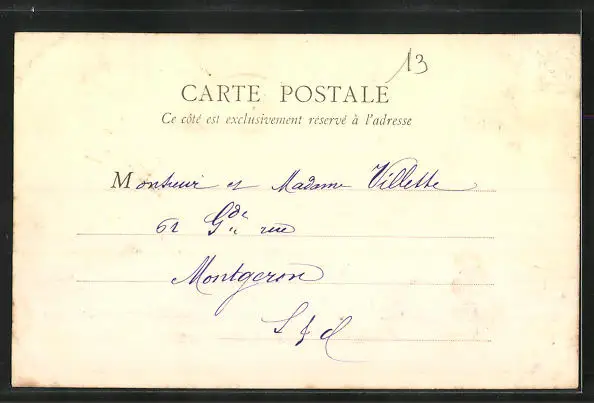 13
CARTE POSTALE
Ce côté est exclusivement réservé à l'adresse
Monsieur et Madame Villette
61 Gde rue
Montgeron
S & O